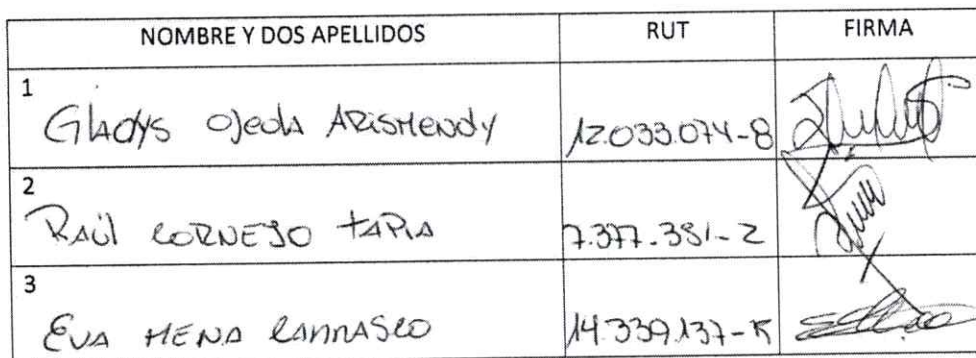 NOMBRE Y DOS APELLIDOS RUT FIRMA
1
Gladys Ojeda Arismendy 12.033.074-8
2
Raúl Cornejo Tapia 7.377.381-2
3
Eva Mena Carrasco 14.339.137-K